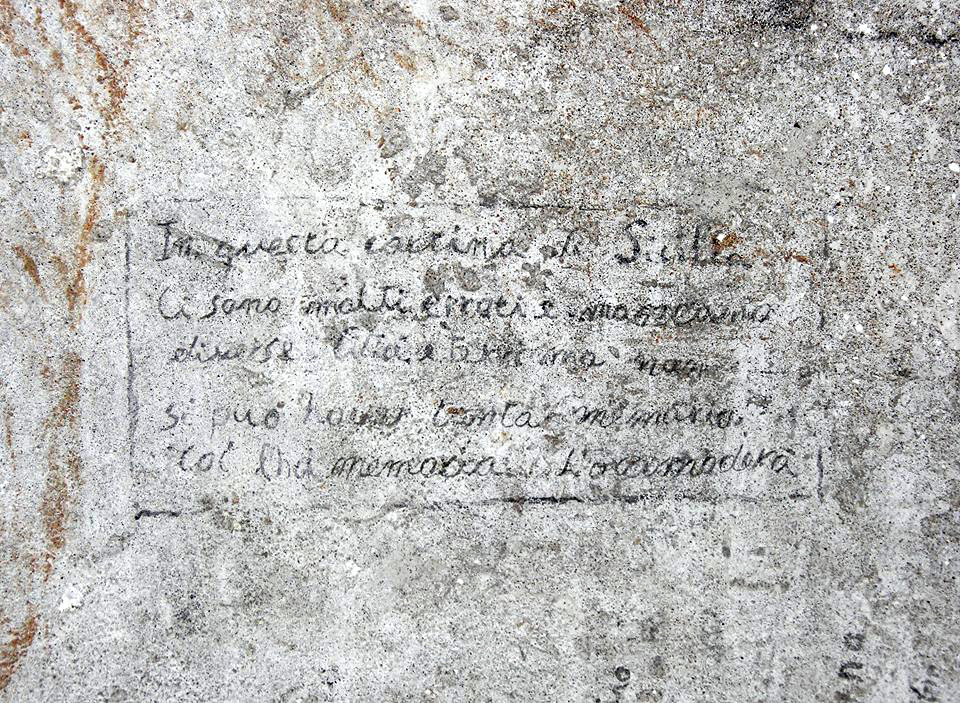 In questa cartina di Sicilia
Ci sono molti errori e mancano
diverse Città e terre ma non
si può haver tanta memoria
col hà memoria L'accomoderà